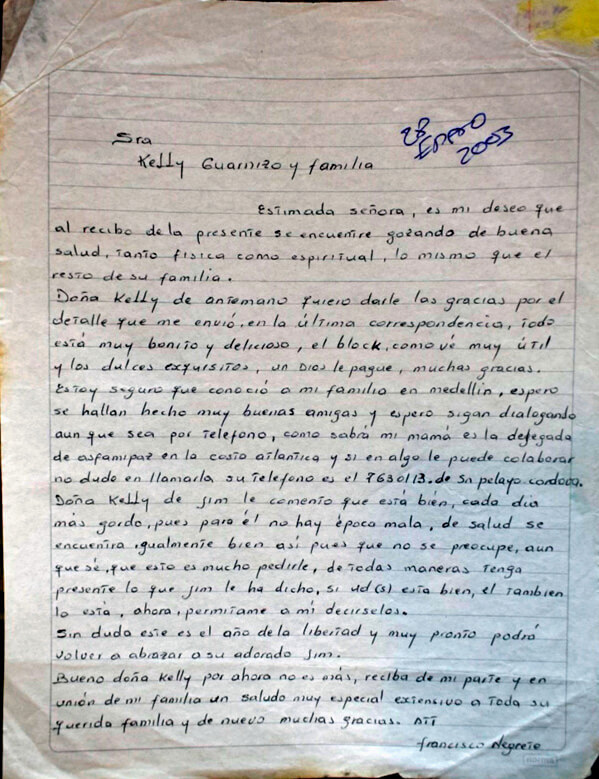 28
Enero
2003
Sra
Kelly Guarnizo y familia
Estimada señora, es mi deseo que
al recibo de la presente se encuentre gozando de buena
salud, tanto fisica como espiritual, lo mismo que el
resto de su familia.
Doña Kelly de antemano quiero darle las gracias por el
detalle que me envió, en la última correspondencia, todo
está muy bonito y delicioso, el block, como vé muy útil
y los dulces exquisitos, un Dios le pague, muchas gracias.
Estoy seguro que conoció a mi familia en medellin, espero
se hallan hecho muy buenas amigas y espero sigan dialogando
aun que sea por telefono, como sabrá mi mamá es la delegada
de asfamipaz en la costa atlantica y si en algo le puede colaborar
no dude en llamarla su telefono es el 7630113. de Sn pelayo cordoba.
Doña Kelly de jim le comento que está bien, cada dia
más gordo, pues para él no hay época mala, de salud se
encuentra igualmente bien asi pues que no se preocupe, aun
que sé, que esto es mucho pedirle, de todas maneras tenga
presente lo que jim le ha dicho, si ud(s) esta bien, el tambien
lo está, ahora, permitame a mi decirselos.
Sin duda este es el año de la libertad y muy pronto podrá
volver a abrazar a su adorado jim.
Bueno doña Kelly por ahora no es más, reciba de mi parte y en
unión de mi familia un saludo muy especial extensivo a toda su
querida familia y de nuevo muchas gracias. Att
francisco Negrete